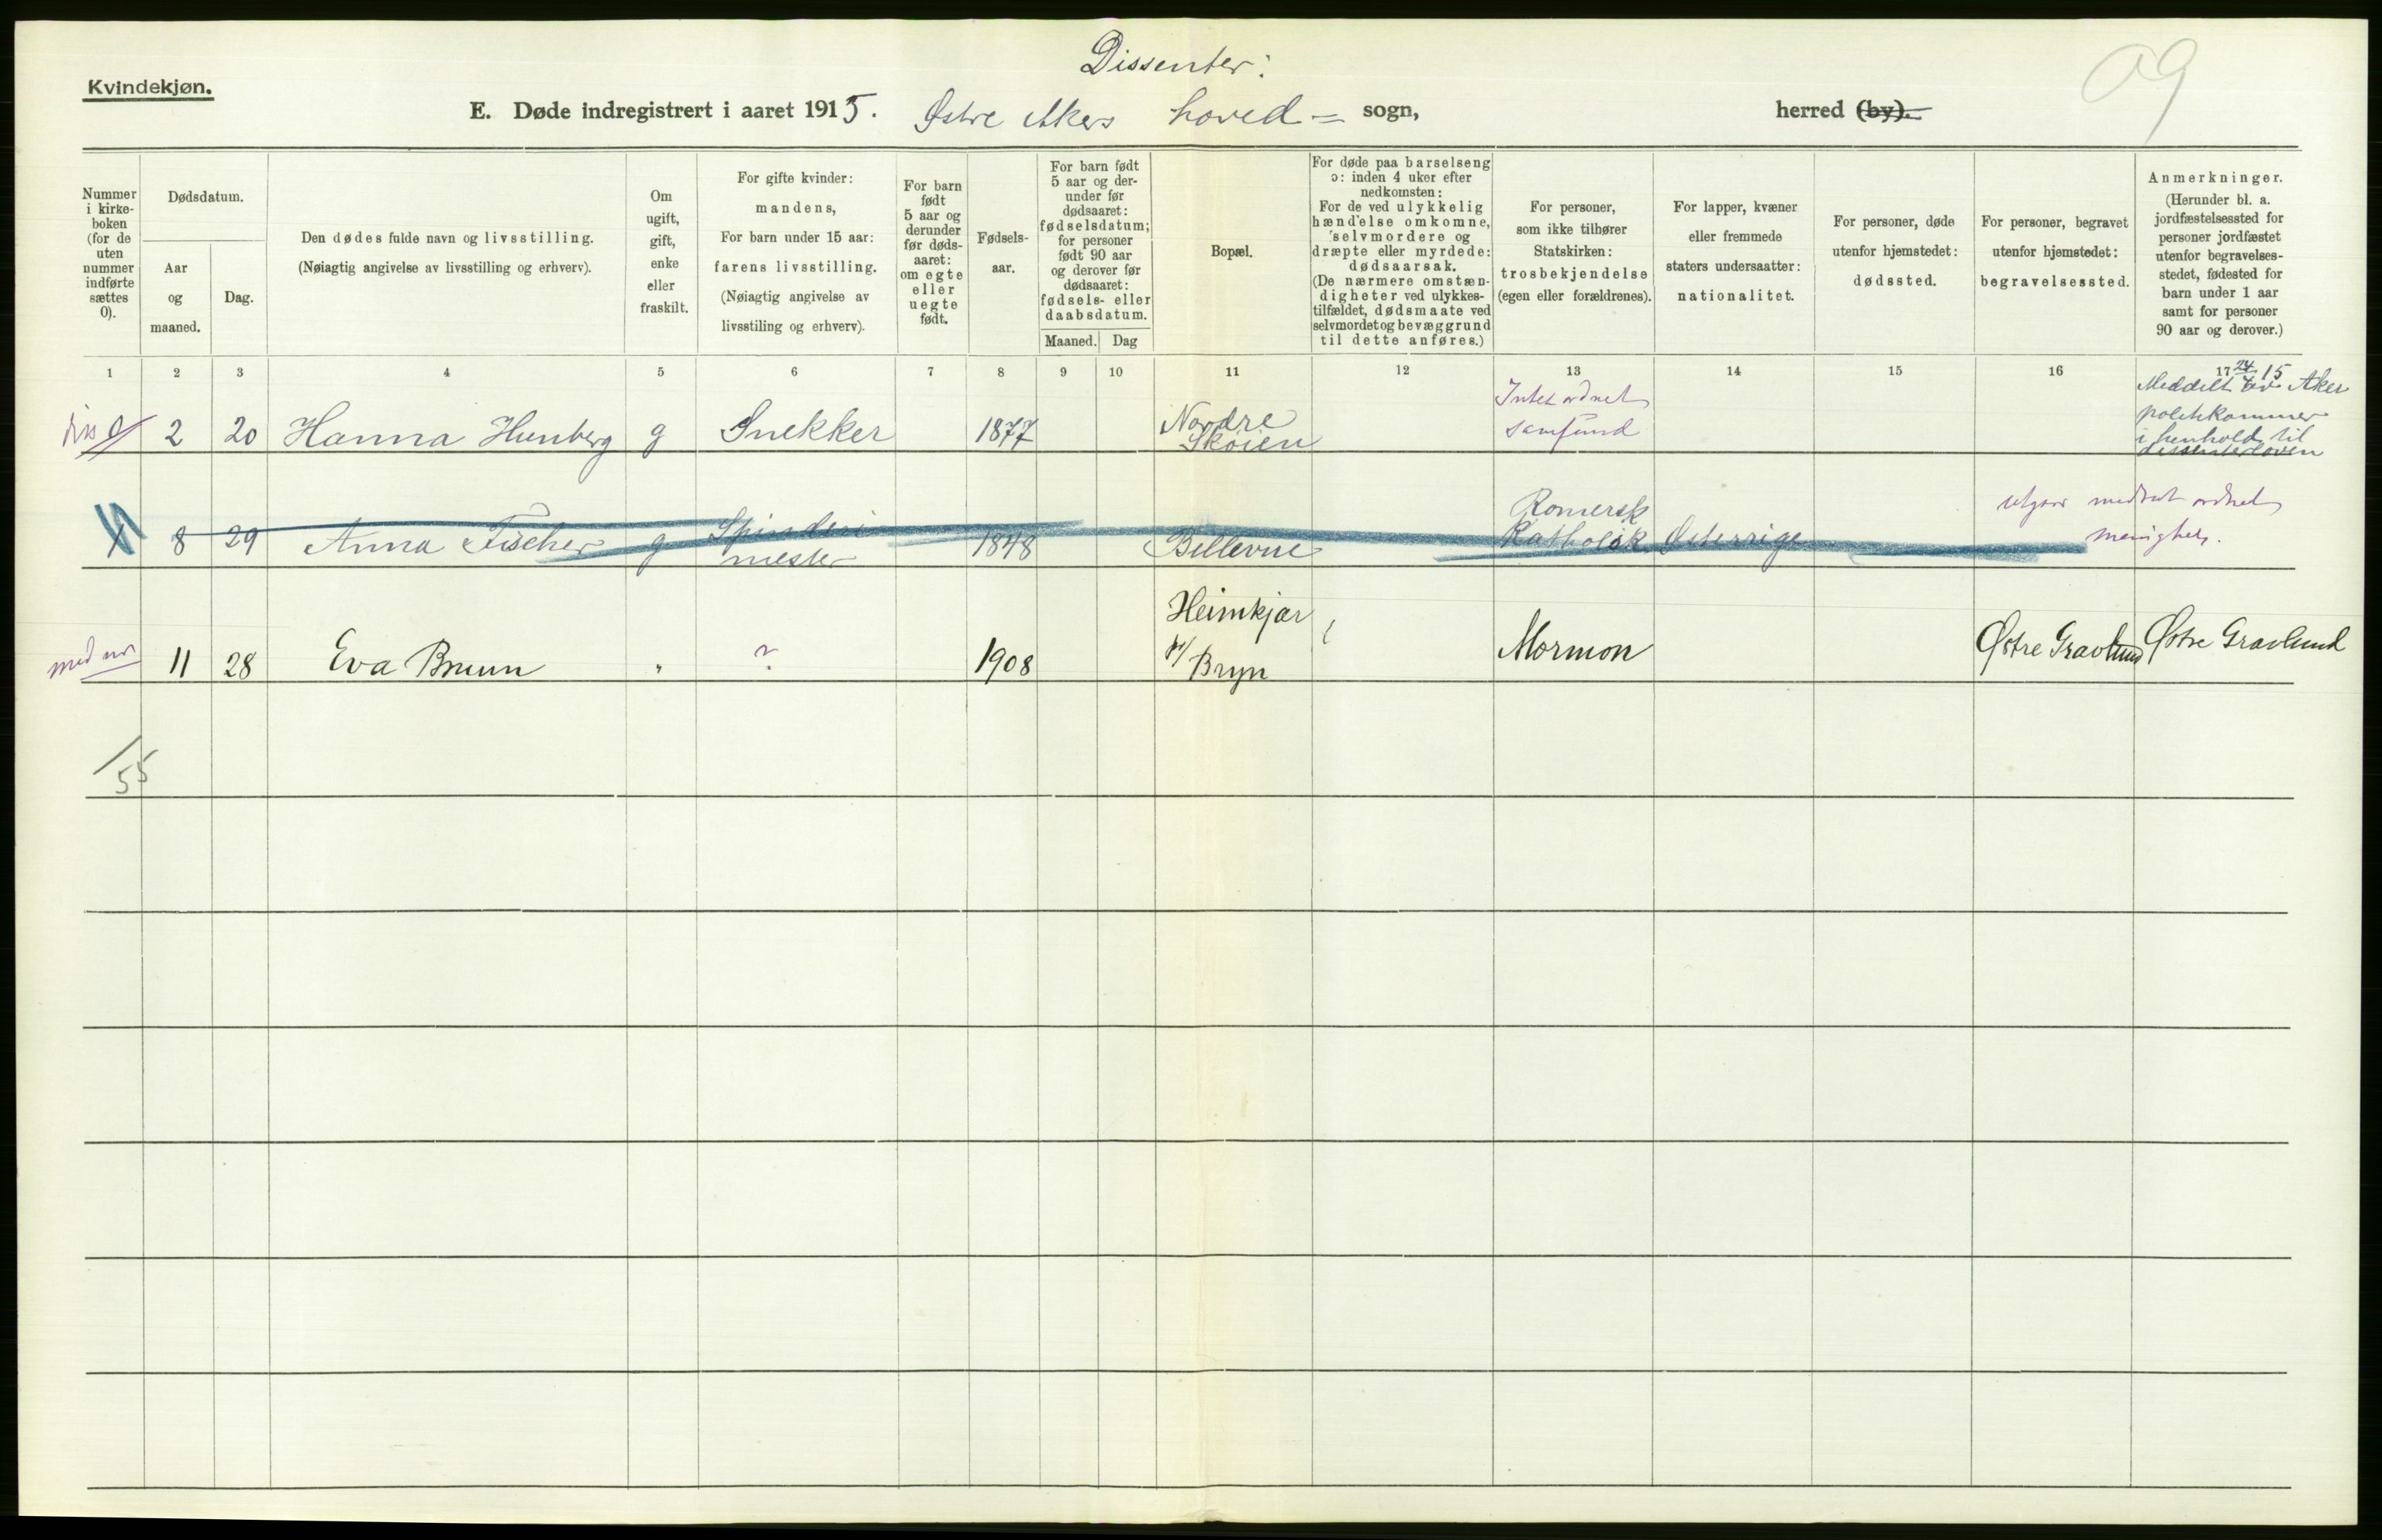 Dissenter:
Kvindekjøn.
E. Døde indregistrert i aaret 1915. Østre Akers hoved= sogn, herred (by).
09
Nummer i kirke-boken (for de uten nummer indførte sættes 0).
Dødsdatum.
Aar og maaned.
Dag.
Den dødes fulde navn og livsstilling.
(Nøiagtig angivelse av livsstilling og erhverv).
Om ugift, gift, enke eller fraskilt.
For gifte kvinder: mandens,
For barn under 15 aar: farens livsstilling.
(Nøiagtig angivelse av livsstiling og erhverv).
For barn født 5 aar og derunder før døds-aaret: om egte eller uegte født.
Fødsels-aar.
For barn født 5 aar og der-under før dødsaaret: fødselsdatum; for personer født 90 aar og derover før dødsaaret: fødsels- eller daabsdatum.
Maaned. Dag
Bopæl.
For døde paa barselseng ɔ: inden 4 uker efter nedkomsten:
For de ved ulykkelig hændelse omkomne, selvmordere og dræpte eller myrdede: dødsaarsak.
(De nærmere omstæn-digheter ved ulykkes-tilfældet, dødsmaate ved selvmordet og bevæggrund til dette anføres.)
For personer, som ikke tilhører Statskirken: trosbekjendelse (egen eller forældrenes).
For lapper, kvæner eller fremmede staters undersaatter: nationalitet.
For personer, døde utenfor hjemstedet: dødssted.
For personer, begravet utenfor hjemstedet: begravelsessted.
Anmerkninger.
(Herunder bl. a. jordfæstelsessted for personer jordfæstet utenfor begravelses-stedet, fødested for barn under 1 aar samt for personer 90 aar og derover.)
1 2 3 4 5 6 7 8 9 10 11 12 13 14 15 16 17
2 20 Hanna Hunberg g Snekker 1877 Nordre Skøien Intet ordnet samfund
Meddelt av Aker
politikammer
i henhold til
dissenterloven
8 29 Anna Fischer g Spinderi mester 1848 Bellevue Romersk Katholsk Østerrige
utgaar medtat ordnet
menighet.
11 28 Eva Bruun " ? 1908 Heimkjær p/ Bryn Mormon Østre Gravlund Østre Gravlund
55